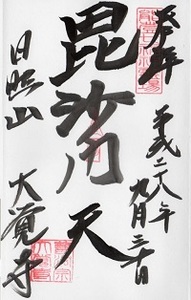 奉拝
平成二八年九月三十日
毘沙門天
日照山
大覚寺